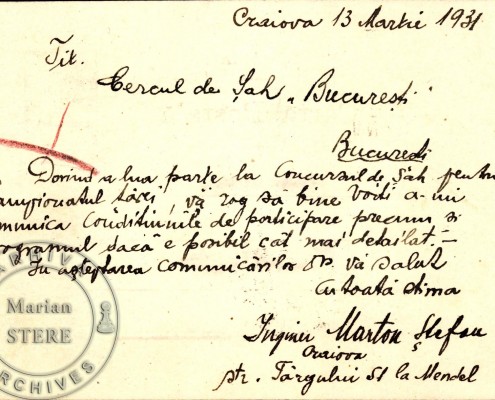 Craiova 13 Martie 1931
Tit.
Cercul de Șah „București”
București
Dorind a lua parte la Concursul de Șah pentru
ampionatul țărei, vă rog să bine voiți a-mi
munica Condițiunile de participare precum și
rogramul dacă e posibil cât mai detailat. —
În așteptarea comunicărilor Dv. vă salut
cu toată stima
Inginer Marton Ștefan
Craiova
str. Târgului 51 la Mendel
Marian
STERE
ARCHIVES